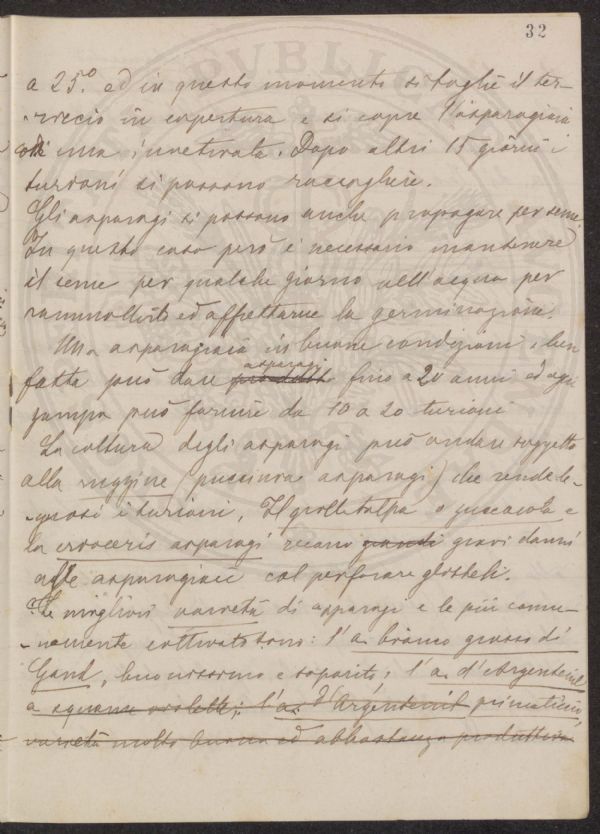 32
a 25.° ed in questo momento si toglie il ter-
-riccio in copertura e si copre l'asparagiaia
con una invetriata. Dopo altri 15 giorni i
turioni si possono raccogliere.
Gli asparagi si possono anche propagare per seme.
In questo caso però è necessario mantenere
il seme per qualche giorno nell'acqua per
rammollirlo ed affrettarne la germinazione.
Una asparagiaia in buone condizioni e ben
fatta può dare prodotti asparagi fino a 20 anni ed ogni
zampa può fornire da 10 a 20 turioni
La coltura degli asparagi può andare soggetta
alla ruggine (puccinia asparagi) che rende le-
-gnosi i turioni. Il grillotalpa o zuccaiola e
la crioceris asparagi recano grandi gravi danni
alle asparagiaie col perforare gli steli.
Le migliori varietà di asparagi e le più comu-
-nemente coltivate sono: l'a. bianco grosso di
Gand, buonissimo e saporito; l'a. d'Argenteuil
a squame violette; l'a. d'Argenteuil primaticcio,
varietà molto buona ed abbastanza produttiva